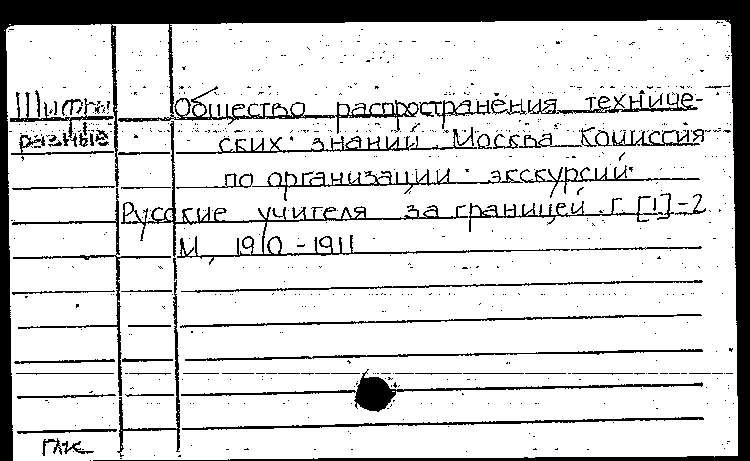 Шифры
разные
Общество распространения техниче-
ских знаний. Москва Комиссия
по организации экскурсий
Русские учителя за границей. Г. [1]-2
М., 1910-1911
ГПК